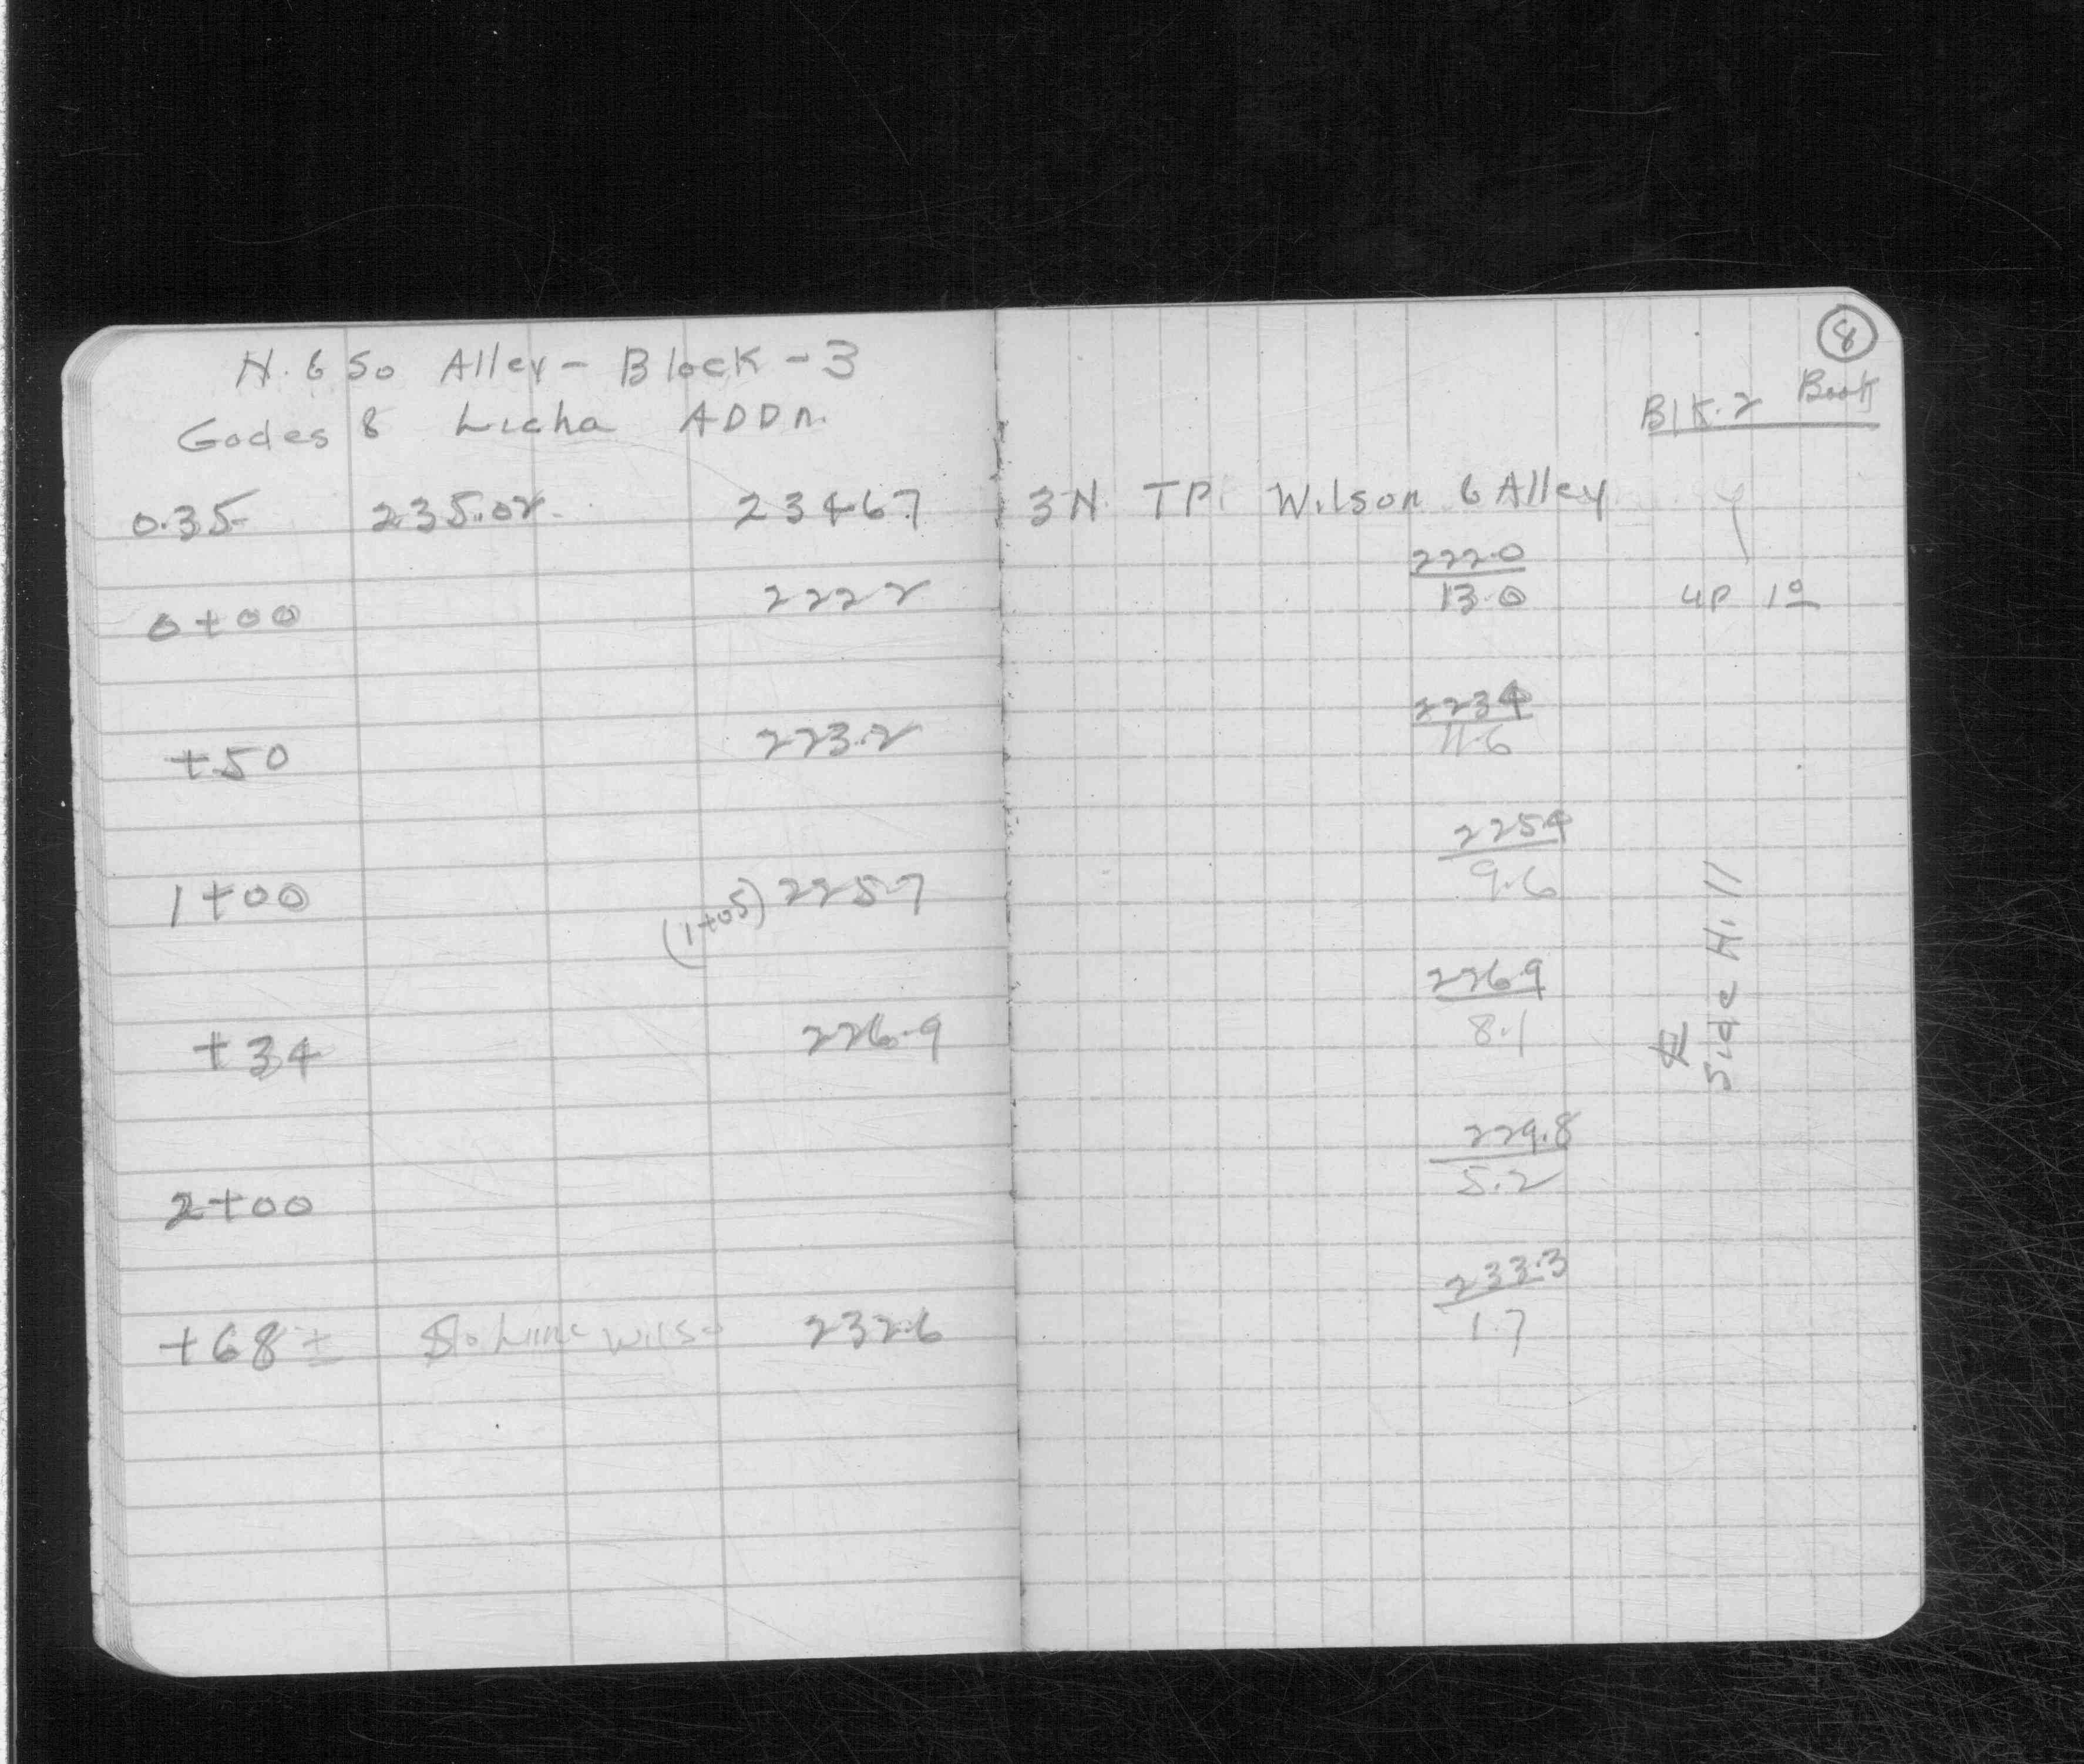 N. & So Alley - Block - 3
Godes & Licha ADDn.
8
Blk. 2 Book
0.35 235.02 234.67 3N. TP. Wilson & Alley
222.0
0+00 222.2 13.0 up 1º
223.4
+50 223.2 11.6
225.4
1+00 (1+05) 225.7 9.6
226.9
+34 226.9 8.1
Side Hill
229.8
2+00 5.2
233.3
+68± So. Line Wilso 232.6 1.7